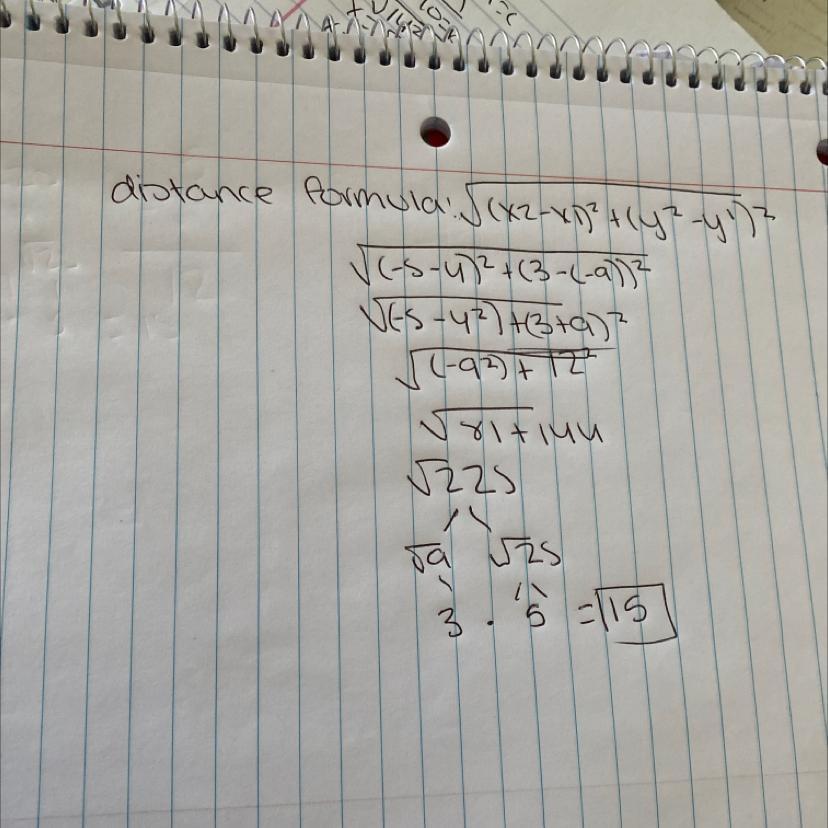 distance formula: √(x2-x1)² + (y²-y¹)²
√(-5-4)² + (3-(-9))²
√(-5-4²) + (3+9)²
√(-9²) + 12²
√81+144
√225
√9 √25
3 · 5 = 15